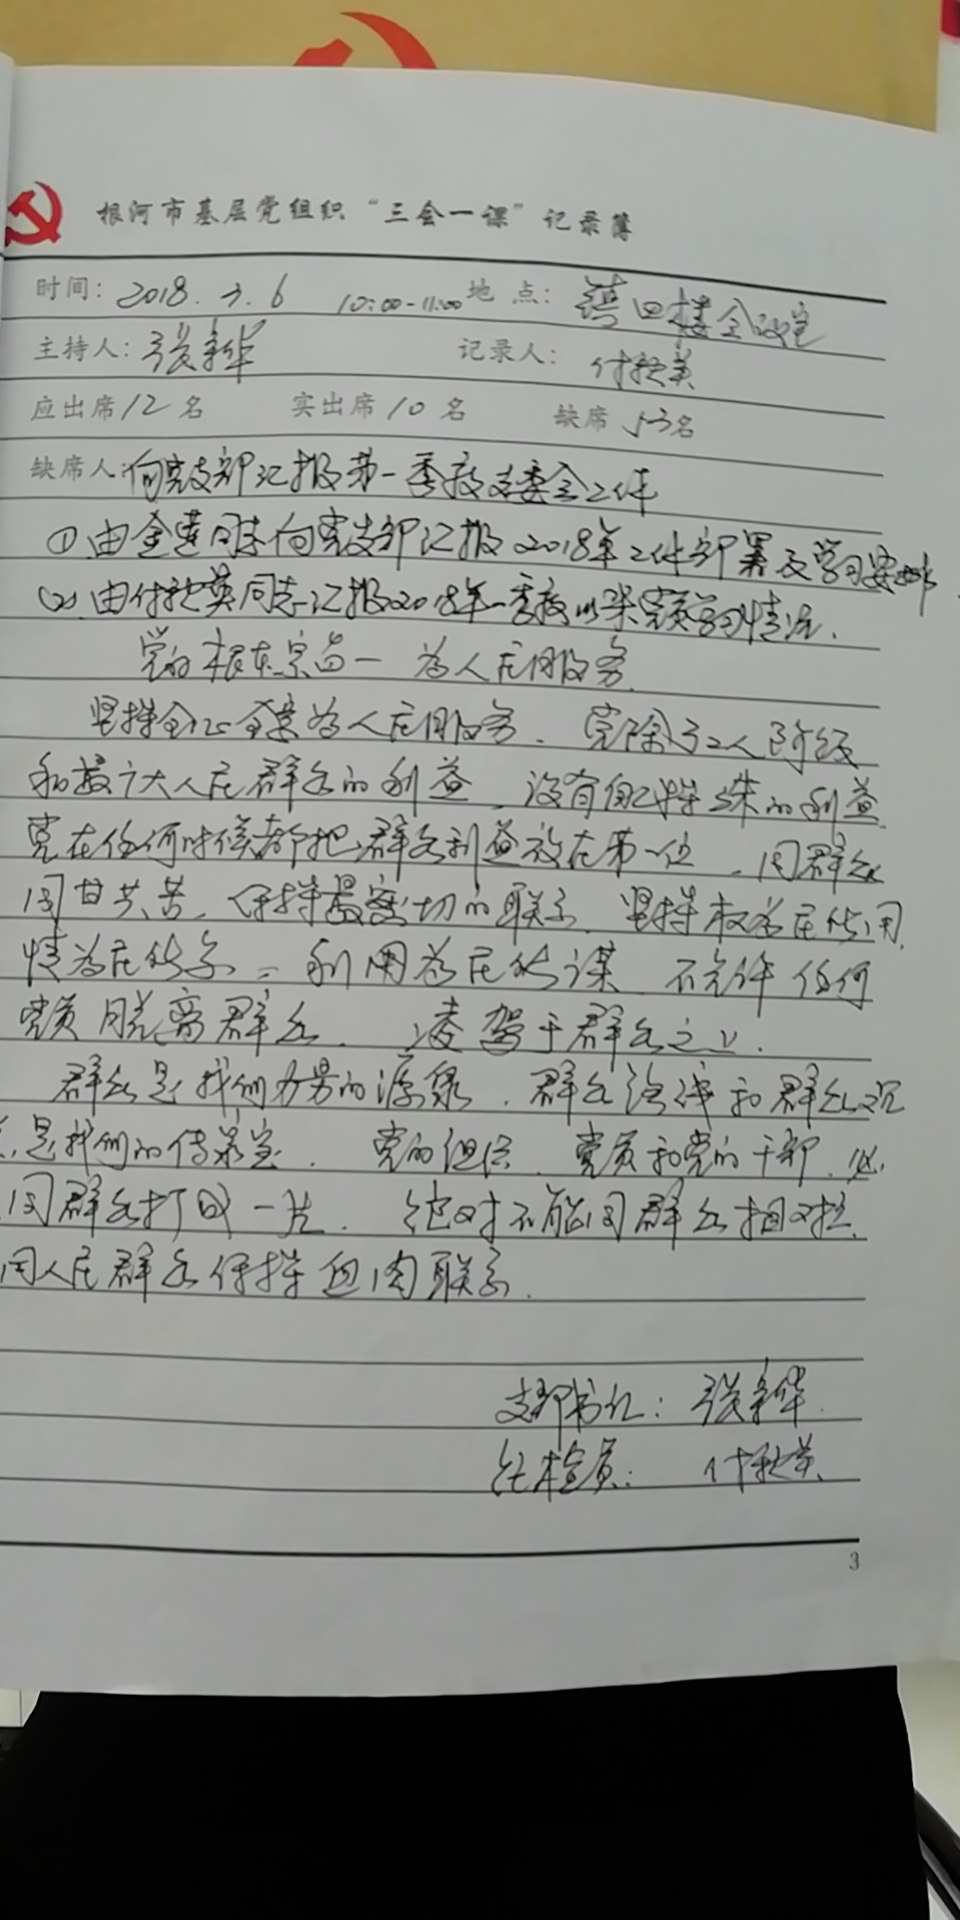 根河市基层党组织“三会一课”记录簿
时间：2018.7.6 10:00-11:00 地点：镇四楼会议室
主持人：张新华 记录人：付秋英
应出席12名 实出席10名 缺席 名
缺席人：向党支部汇报第一季度支委会工作
①由金莲同志向党支部汇报2018年工作部署及学习安排
(2)由付秋英同志汇报2018年一季度以来党员学习情况.
党的根本宗旨一 为人民服务.
坚持全心全意为人民服务. 党除了工人阶级
和最广大人民群众的利益，没有自己特殊的利益.
党在任何时候都把群众利益放在第一位，同群众
同甘共苦，保持最密切的联系，坚持权为民所用，
情为民所系，利用为民所谋，不允许任何
党员脱离群众，凌驾于群众之上.
群众是我们力量的源泉，群众路线和群众观
点是我们的传家宝. 党的组织、党员和党的干部，必
同群众打成一片，绝对不能同群众相对立.
同人民群众保持血肉联系.
支部书记：张新华
纪检委员：付秋英
3